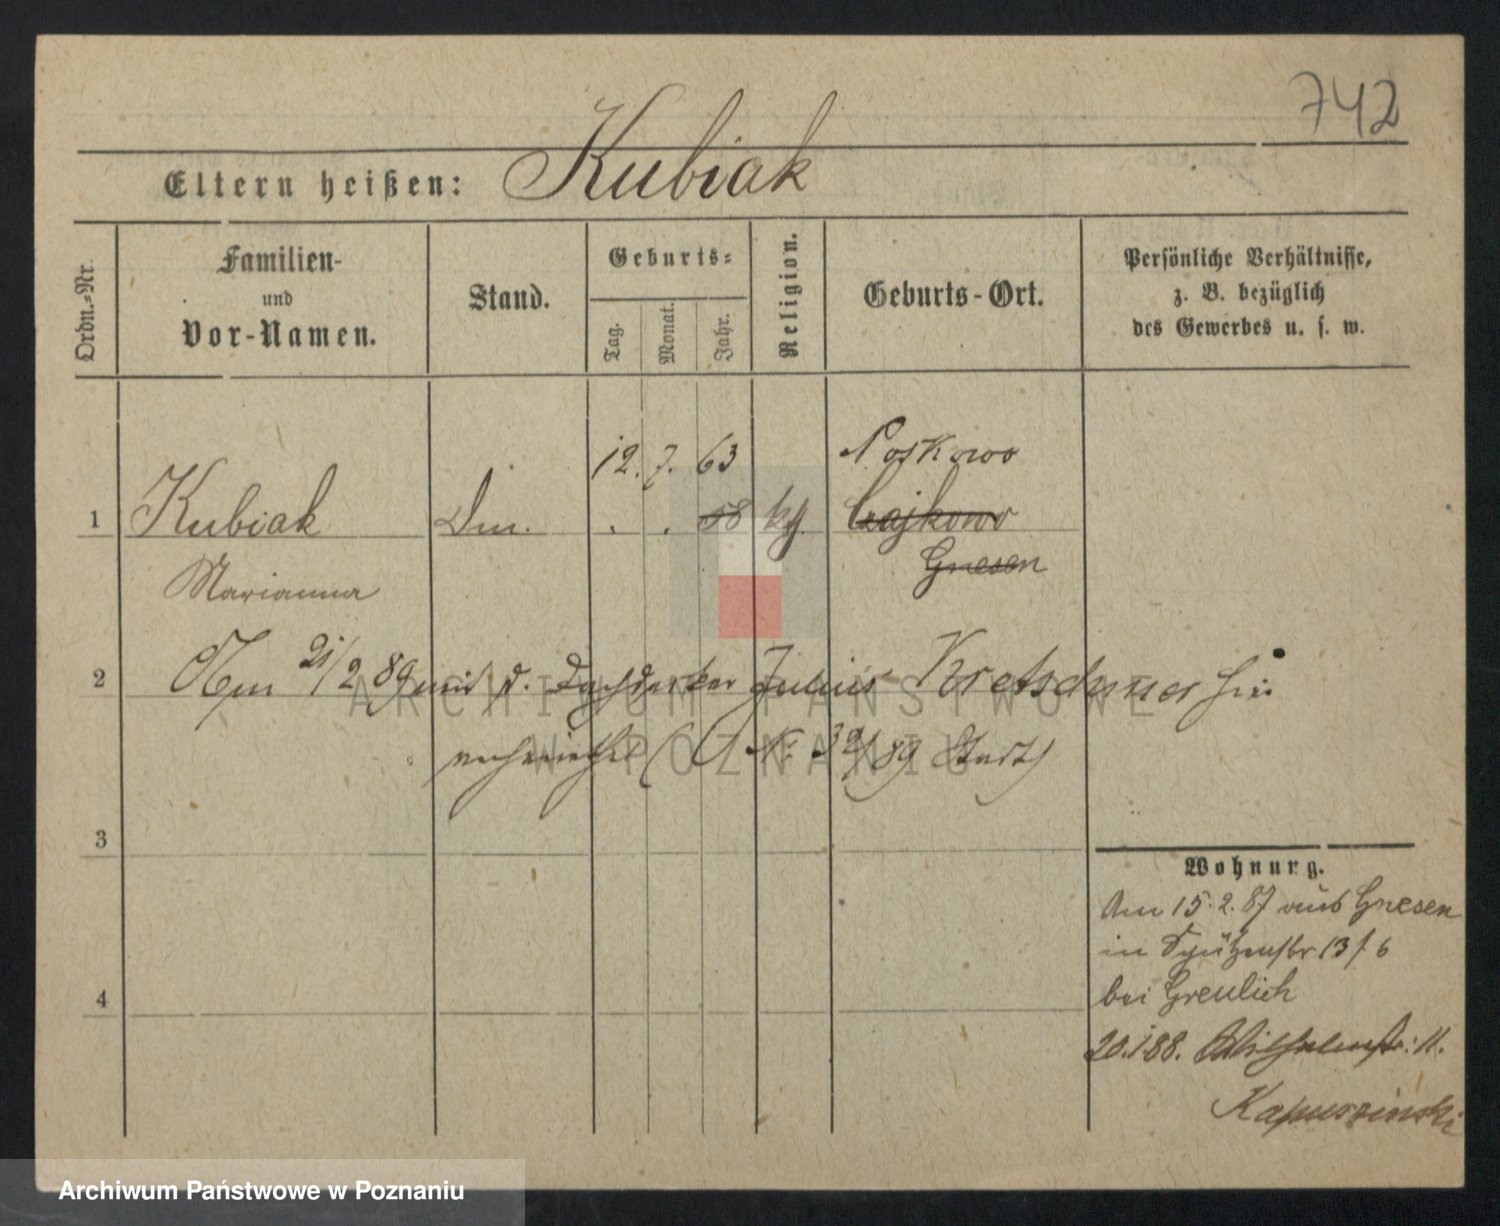 742
Eltern heißen: Kubiak
Ordn.=Nr.
Familien-
und
Vor-Namen.
Stand.
Geburts=
Tag.
Monat.
Jahr.
Religion.
Geburts-Ort.
Persönliche Verhältnisse,
z. B. bezüglich
des Gewerbes u. s. w.
12. 7. 63 Noskowo
1 Kubiak . . 58 kth. Czajkowo
Marianna Gnesen
2 Am 21/2 89 mit d. Dachdecker Julius Kretschmer hier
verheirathet ( No 39/89 Stadt)
3
4
Wohnung.
Am 15.2.87 aus Gnesen
in Schützenstr 13 / 6
bei Greulich
20.1.88. Wilhelmstr: 11.
Kapuszinski
ARCHIWUM PAŃSTWOWE
W POZNANIU
Archiwum Państwowe w Poznaniu